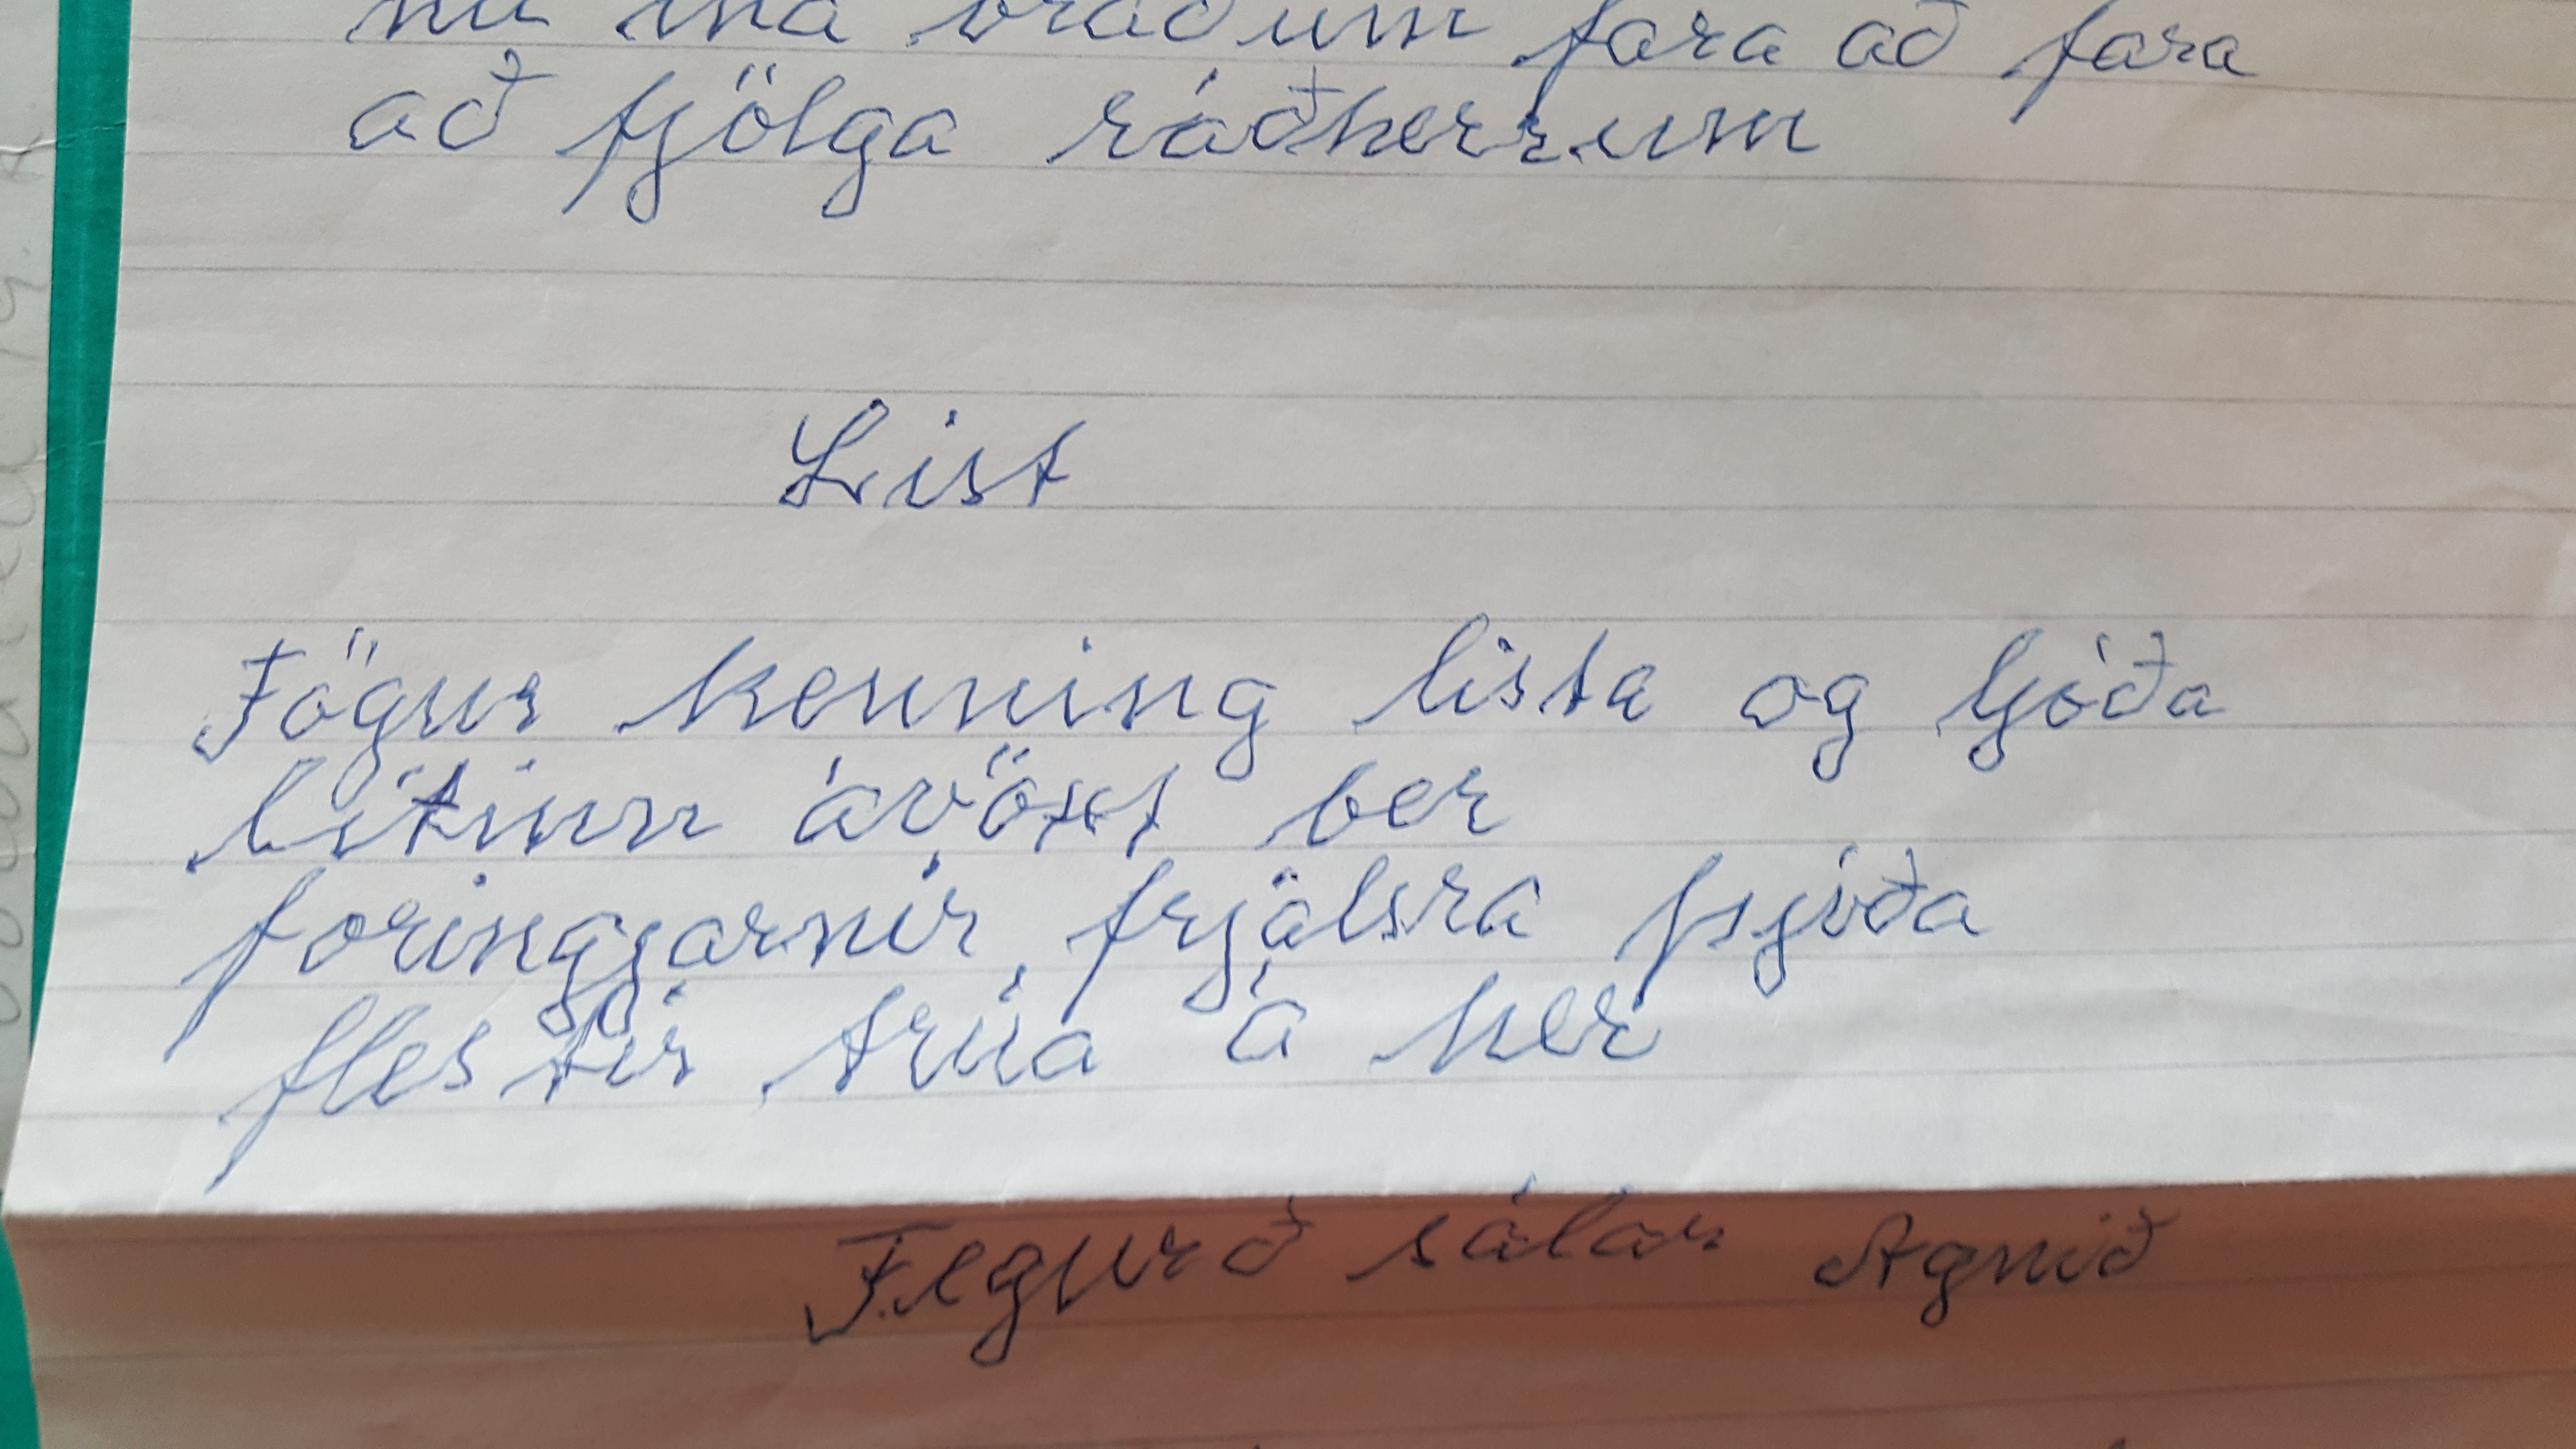 nú má bráðum fara að fara
að fjölga ráðherrum
List
Fögur kenning lista og ljóða
lítinn ávöxt ber
foringjarnir, frjálsra þjóða
flestir trúa á her
Fegurð sálar Agnið